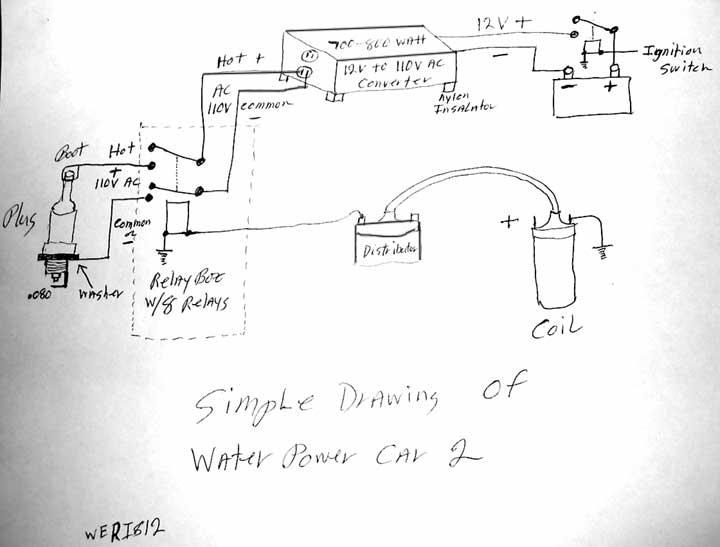 12V +
700-800 WATT
12V to 110V AC
Converter
Ignition
Switch
Hot +
-
AC
110V
common
-
- +
Nylon
Insalator
Boot
Hot
+
110V AC
Plug
common
-
.080
Washer
Relay Box
W/8 Relays
Distributor
+
Coil
Simple Drawing of
Water Power Car 2
WERI812